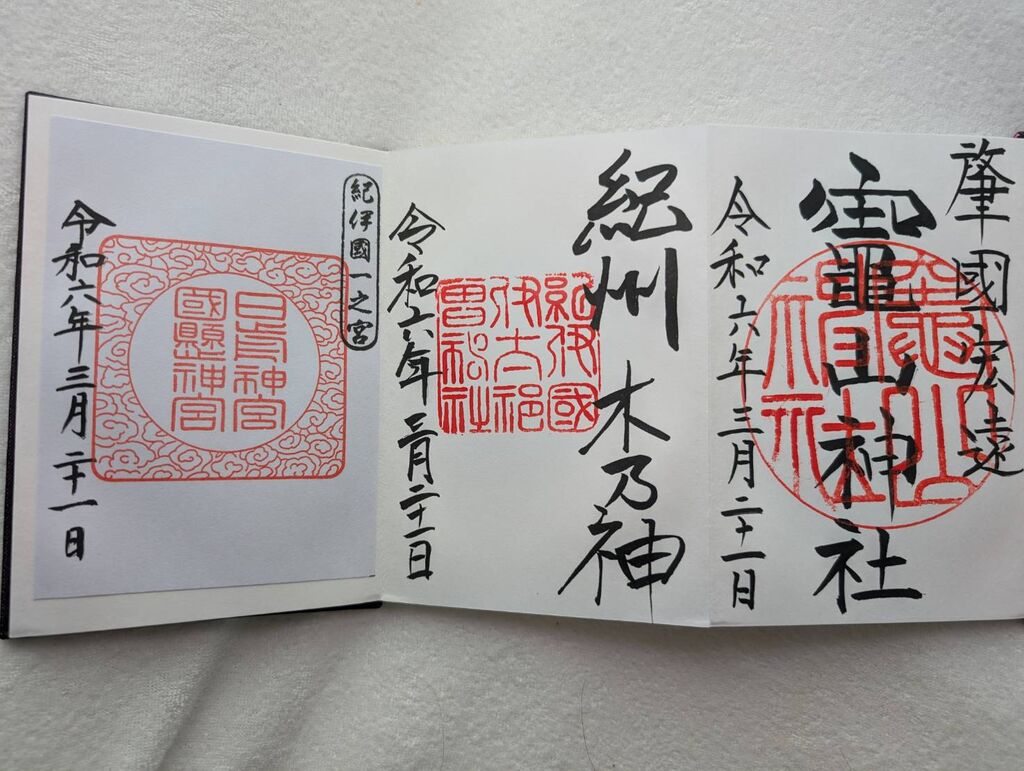 肇國宏遠
竈山神社
竈山
神社
令和六年三月二十一日
紀州 木乃神
紀伊國
伊太祁
曽神社
令和六年三月二十一日
紀伊國一之宮
日前神宮
國懸神宮
令和六年三月二十一日